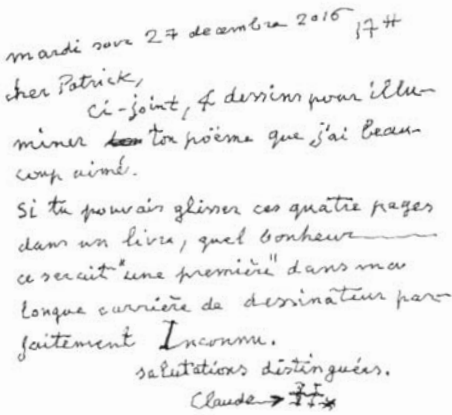 mardi soir 27 decembre 2016 17 H
cher Patrick,
ci-joint, 4 dessins pour illu-
miner ton poëme que j'ai beau-
coup aimé.
Si tu pouvais glisser ces quatre pages
dans un livre, quel bonheur
ce serait "une première" dans ma
longue carrière de dessinateur par-
faitement Inconnu.
salutations distinguées.
Claude